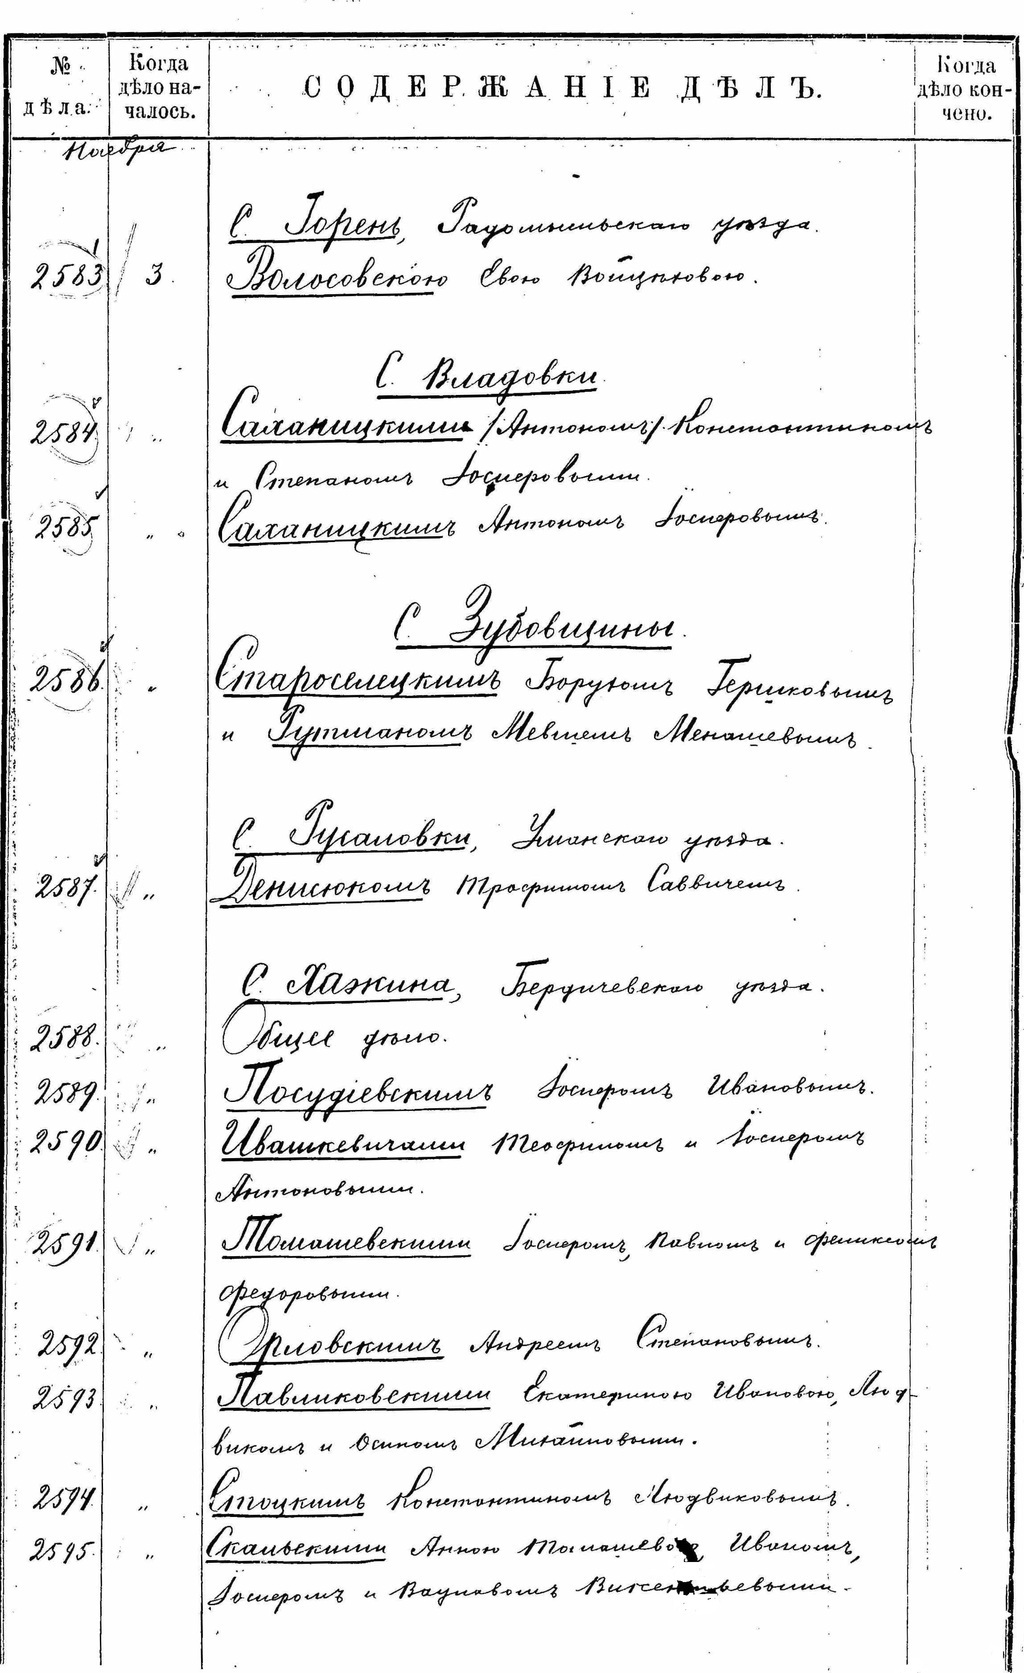 № дѣла.
Когда дѣло началось.
СОДЕРЖАНІЕ ДѢЛЪ.
Когда дѣло кончено.
Ноября
С. Горень, Радомысльскаго уѣзда.
2583 3. Волосовскою Евою Войцѣховою.
С. Владовки.
2584 „ Саханицкими /Антономъ/ Константиномъ
и Степаномъ Іосифовыми.
2585 „ „ Саханицкимъ Антономъ Іосифовымъ.
С. Зубовщины.
2586. „ Староселецкимъ Борухомъ Гершковымъ
и Гутманомъ Мевшемъ Менашевымъ.
С. Русаловки, Уманскаго уѣзда.
2587. „ Денисюкомъ Трофимомъ Саввичемъ.
С. Хажина, Бердичевскаго уѣзда.
2588. „ Общее дѣло.
2589. „ Посудіевскимъ Іосифомъ Ивановымъ.
2590. „ Ивашкевичами Теофиломъ и Іосифомъ
Антоновыми.
2591. „ Томашевскими Іосифомъ, Павломъ и Феликсомъ
Федоровыми.
2592. „ Орловскимъ Андреемъ Степановымъ.
2593. „ Павликовскими Екатериною Ивановою, Люд-
викомъ и Осипомъ Михайловыми.
2594. „ Стоцкимъ Константиномъ Людвиковымъ.
2595. „ Скальскими Анною Томашевою, Иваномъ,
Іосифомъ и Вацлавомъ Викентьевыми.